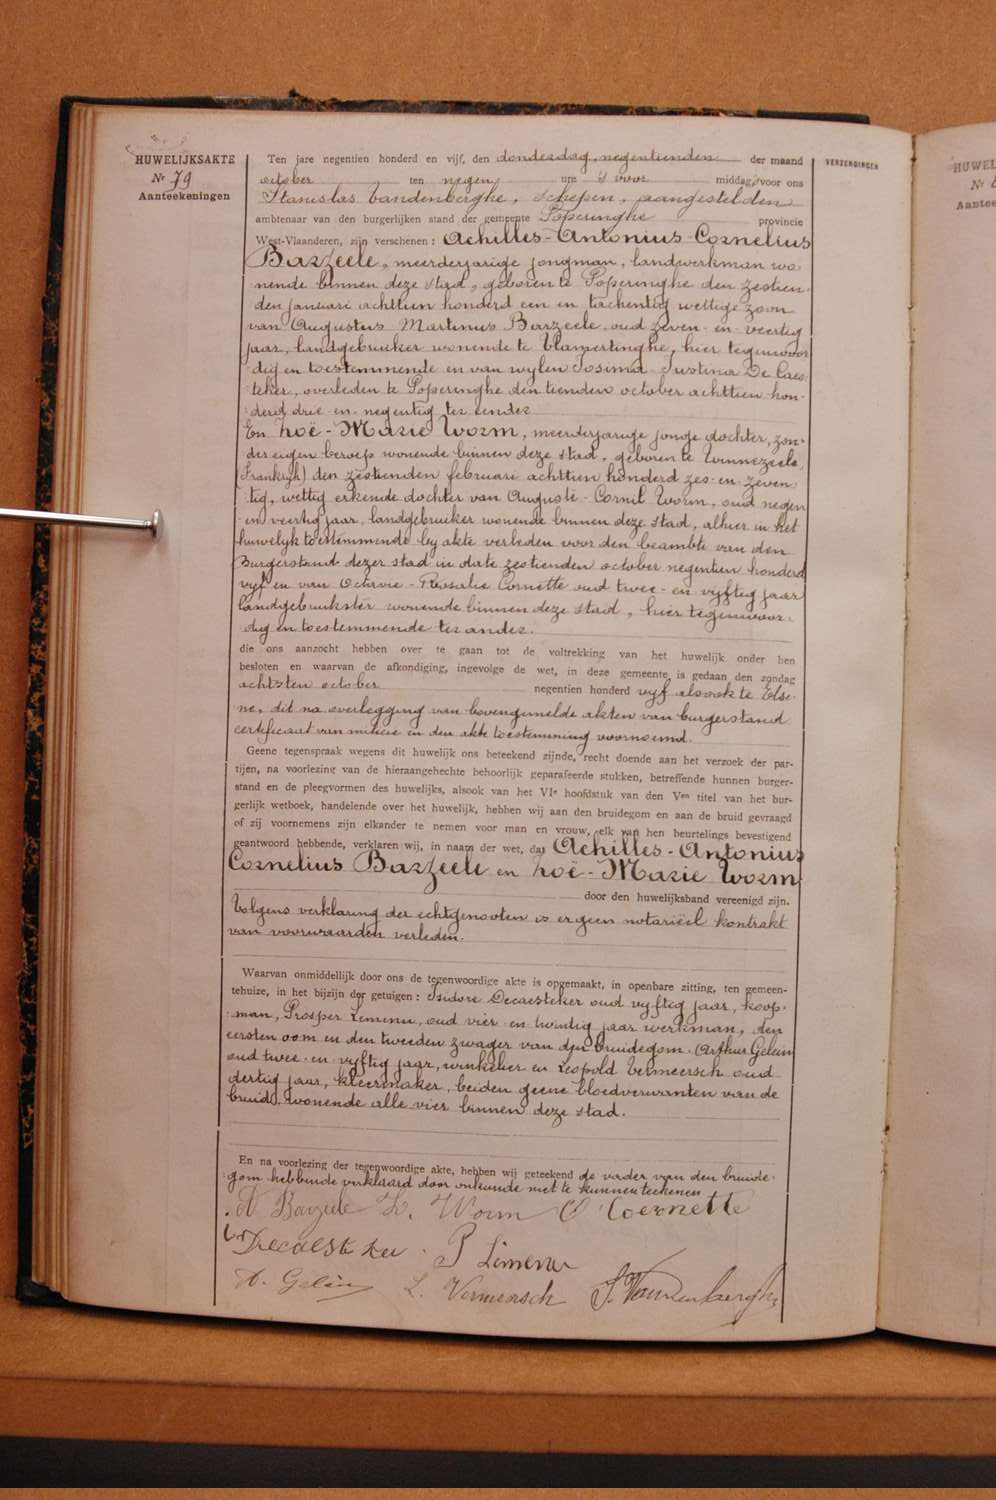 HUWELIJKSAKTE
Nr 79
Aanteekeningen
VERZENDINGEN
Ten jare negentien honderd en vijf, den donderdag, negentienden der maand
october ten negen ure 's voor middags voor ons
Stanislas Vandenberghe, schepen, aangestelden
ambtenaar van den burgerlijken stand der gemeente Poperinghe provincie
West-Vlaanderen, zijn verschenen: Achilles-Antonius-Cornelius
Barzeele, meerderjarige jongman, landwerkman wo-
nende binnen deze stad, geboren te Poperinghe den zestien-
den januari achttien honderd een en tachentig wettige zoon
van Augustus Martinus Barzeele, oud zeven-en-veertig
jaar, landgebruiker wonende te Vlamertinghe, hier tegenwoor-
dig en toestemmende en van wylen Sosima-Justina De Caes-
teker, overleden te Poperinghe den tienden october achttien hon-
derd drie-en-negentig ter eender
En Zoë-Marie Worm, meerderjarige jonge dochter, zon-
der eigen beroep wonende binnen deze stad, geboren te Winnezeele,
(Frankryk) den zestienden februari achttien honderd zes-en-zeven-
tig, wettig erkende dochter van Auguste-Cornil Worm, oud negen
en veertig jaar, landgebruiker wonende binnen deze stad, alhier in het
huwelyk toestemmende by akte verleden voor den beambte van den
Burgerstand dezer stad in date zestienden october negentien honderd
vyf en van Octavie-Rosalie Cornette oud twee-en-vyftig jaar
landgebruikster wonende binnen deze stad, hier tegenwoor-
dig en toestemmende ter ander.
die ons aanzocht hebben over te gaan tot de voltrekking van het huwelijk onder hen
besloten en waarvan de afkondiging, ingevolge de wet, in deze gemeente is gedaan den zondag
achtsten october negentien honderd vyf alsook te Else-
ne, dit na overlegging van bovengemelde akten van burgerstand
certificaat van militie en der akte toestemming voornoemd.
Geene tegenspraak wegens dit huwelijk ons beteekend zijnde, recht doende aan het verzoek der par-
tijen, na voorlezing van de hieraangehechte behoorlijk geparafeerde stukken, betreffende hunnen burger-
stand en de pleegvormen des huwelijks, alsook van het VIe hoofdstuk van den Ven titel van het bur-
gerlijk wetboek, handelende over het huwelijk, hebben wij aan den bruidegom en aan de bruid gevraagd
of zij voornemens zijn elkander te nemen voor man en vrouw, elk van hen beurtelings bevestigend
geantwoord hebbende, verklaren wij, in naam der wet, dat Achilles-Antonius
Cornelius Barzeele en Zoë-Marie Worm
door den huwelijksband vereenigd zijn.
Volgens verklaring der echtgenooten is er geen notariëel kontrakt
van voorwaarden verleden.
Waarvan onmiddellijk door ons de tegenwoordige akte is opgemaakt, in openbare zitting, ten gemeen-
tehuize, in het bijzijn der getuigen: Isidore Decaesteker oud vyftig jaar, koop-
man, Prosper Lemenu, oud vier-en-twintig jaar werkman, den
eersten oom en den tweeden zwager van den bruidegom. Arthur Gelein
oud twee-en-vyftig jaar, winkelier en Leopold Vermeersch oud
dertig jaar, kleermaker, beiden geene bloedverwanten van de
bruid, wonende alle vier binnen deze stad.
En na voorlezing der tegenwoordige akte, hebben wij geteekend de vader van den bruide-
gom hebbende verklaard door onkunde niet te kunnen teekenen
A Barzeele Z. Worm O Coernette
Decaesteker P Limenu
A. Gelein L. Vermeersch S. Vandenberghe